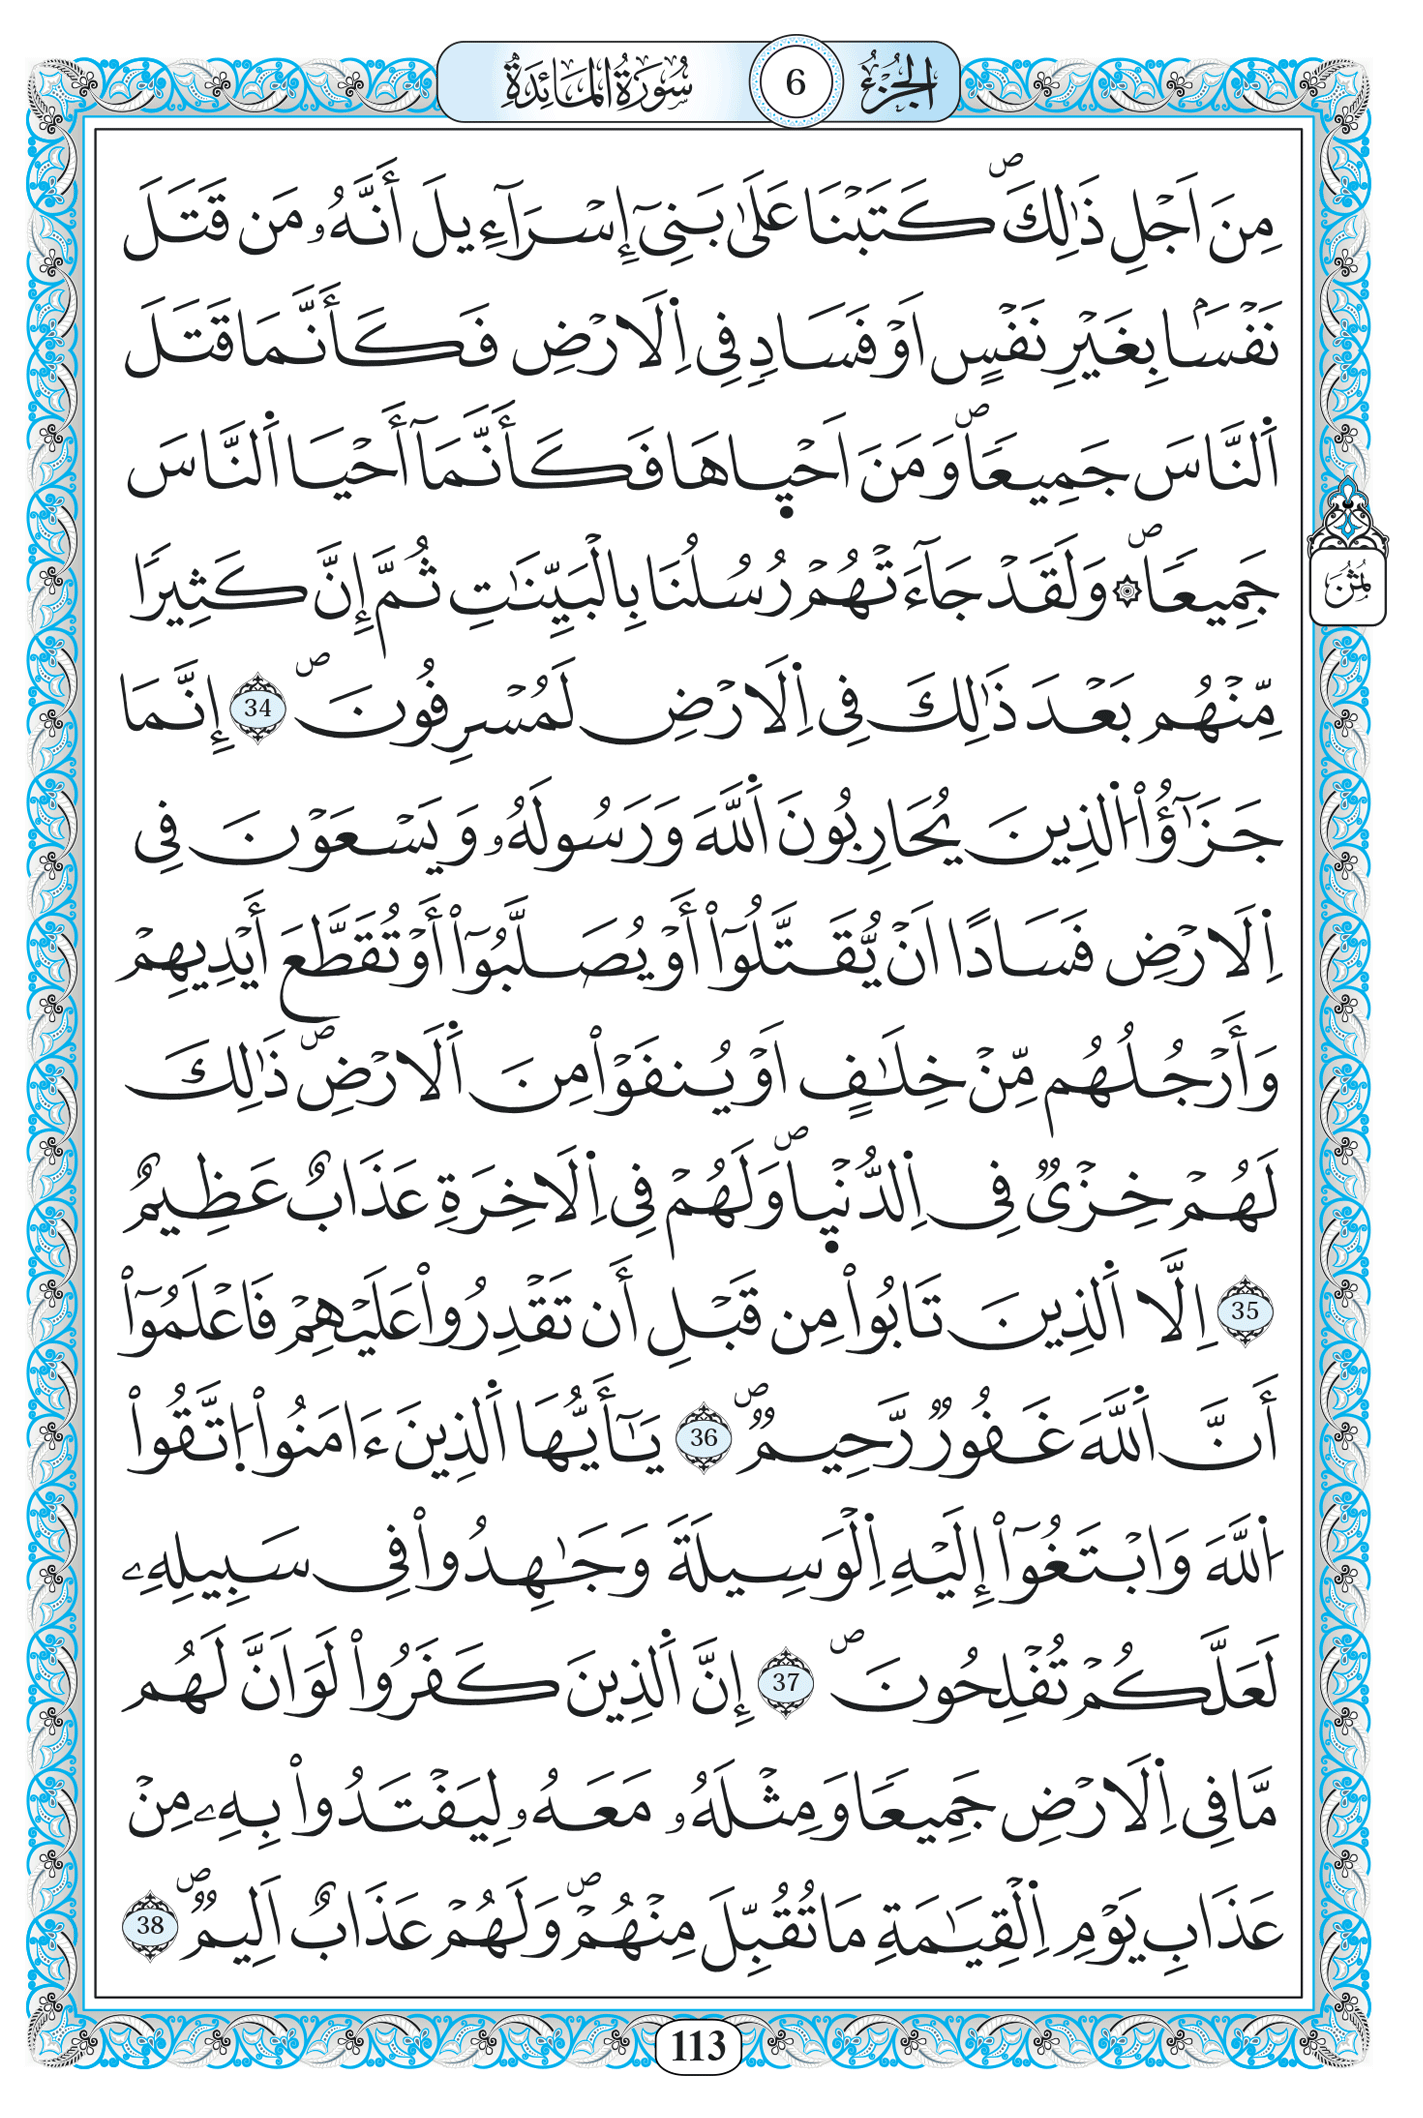 الجزء 6 سورة المائدة
مِنَ اَجْلِ ذَٰلِكَ ۖ كَتَبْنَا عَلَىٰ بَنِىٓ إِسْرَآءِيلَ أَنَّهُۥ مَن قَتَلَ
نَفْسَۢا بِغَيْرِ نَفْسٍ اَوْ فَسَادٖ فِى اِ۬لَارْضِ فَكَأَنَّمَا قَتَلَ
اَ۬لنَّاسَ جَمِيعٗا ۖ وَمَنَ اَحْي۪اهَا فَكَأَنَّمَآ أَحْيَا اَ۬لنَّاسَ
جَمِيعٗا ۖ ۞ وَلَقَدْ جَآءَتْهُمْ رُسُلُنَا بِالْبَيِّنَٰتِ ثُمَّ إِنَّ كَثِيرٗا
ثُمُنُ
مِّنْهُم بَعْدَ ذَٰلِكَ فِى اِ۬لَارْضِ لَمُسْرِفُونَ ۖ 34 إِنَّمَا
جَزَٰٓؤُاْ اُ۬لذِينَ يُحَارِبُونَ اَ۬للَّهَ وَرَسُولَهُۥ وَيَسْعَوْنَ فِى
اِ۬لَارْضِ فَسَادًا اَنْ يُّقَتَّلُوٓاْ أَوْ يُصَلَّبُوٓاْ أَوْ تُقَطَّعَ أَيْدِيهِمْ
وَأَرْجُلُهُم مِّنْ خِلَٰفٍ اَوْ يُنفَوْاْ مِنَ اَ۬لَارْضِ ۖ ذَٰلِكَ
لَهُمْ خِزْىٞ فِى اِ۬لدُّنْي۪ا ۖ وَلَهُمْ فِى اِ۬لَاخِرَةِ عَذَابٌ عَظِيمٌ
35 اِلَّا اَ۬لذِينَ تَابُواْ مِن قَبْلِ أَن تَقْدِرُواْ عَلَيْهِمْ فَاعْلَمُوٓاْ
أَنَّ اَ۬للَّهَ غَفُورٞ رَّحِيمٞ ۖ 36 يَٰٓأَيُّهَا اَ۬لذِينَ ءَامَنُواْ اُ۪تَّقُواْ
اُ۬للَّهَ وَابْتَغُوٓاْ إِلَيْهِ اِ۬لْوَسِيلَةَ وَجَٰهِدُواْ فِى سَبِيلِهِۦ
لَعَلَّكُمْ تُفْلِحُونَ ۖ 37 إِنَّ اَ۬لذِينَ كَفَرُواْ لَوَ اَنَّ لَهُم
مَّا فِى اِ۬لَارْضِ جَمِيعٗا وَمِثْلَهُۥ مَعَهُۥ لِيَفْتَدُواْ بِهِۦ مِنْ
عَذَابِ يَوْمِ اِ۬لْقِيَٰمَةِ مَا تُقُبِّلَ مِنْهُمْ ۖ وَلَهُمْ عَذَابٌ اَلِيمٞ ۖ 38
113